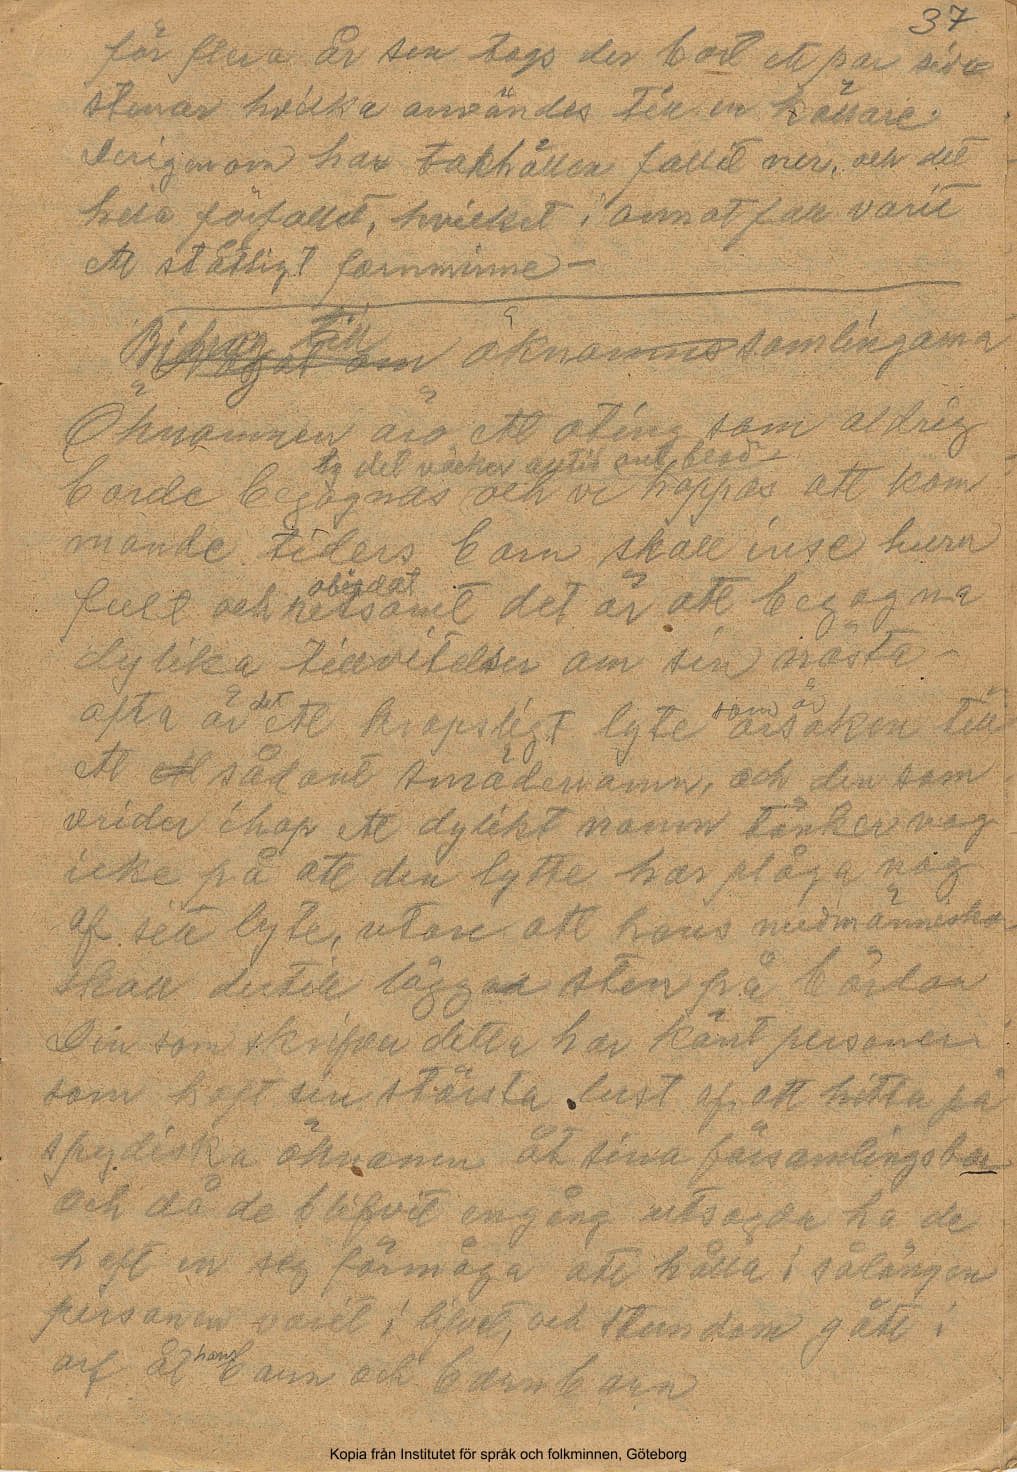 37
för flera år sen togs der bort ett par sido
stenar hvilka användes till en källare.
Derigenom har takhällen fallit ner, och det
hela förfallit, hvilket i annat fall varit
ett ståtligt fornminne –
Bidrag till
Något om öknamns samlingarna
Öknamnen äro ett oting som aldrig
ty det väcker alltid ont blod
borde begagnas och vi hoppas att kom
mande tiders barn skall inse huru
obildat
fult och retsamt det är att begagna
dylika tillvitelser om sin nästa –
ofta är det ett kropsligt lyte som är orsaken till
ett ett sådant smädenamn, och den som
vrider ihop ett dylikt namn tänker nog
icke på att den lytte har plåga nog
af sitt lyte, utan att hans medmänniskor
skall dertill lägga sten på bördan
Den som skrifver detta har känt personer
som haft sin största lust af att hitta på
spydiska öknamn åt sina församlingsbor
och då de blifvit engång utsagda ha de
haft en seg förmåga att hålla i sålängen
personen varit i lifvet, och stundom gått i
arf åt hans barn och barnbarn
Kopia från Institutet för språk och folkminnen, Göteborg